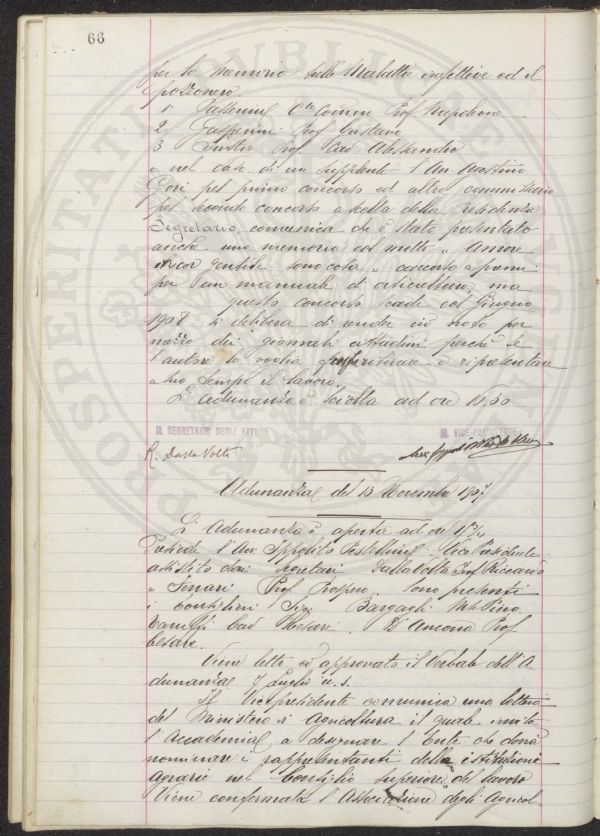 66
per la memoria sulle Malattie infettive ed il
1 Passerini Cte Comm Prof Napoleone
2 Prof Gustavo
3 Prof Alessandro
e nel caso di un supplente l'Avv. Agostino
Gori pel primo concorso ed altro commissario
pel secondo concorso a scelta della Presidenza
Segretario, comunica che è stato presentato
anche una memoria col motto „ Amore
e cor gentile sono una cosa „ concorso a premi
per un manuale di orticultura, ma
questo concorso scade col Giugno
1908 si delibera di render ciò noto per
mezzo dei giornali cittadini perchè se
l'autore lo voglia ritirare e ripresentare
a suo tempo il lavoro.
L'adunanza è sciolta ad ore 15,30
IL SEGRETARIO DEGLI ATTI
IL VICE-PRESIDENTE
R. Dalla Volta
Adunanza del 13 Novembre 1907
L'adunanza è aperta ad ore
Presiede l'Avv. Ippolito Pestellini Vice Presidente
assistito dai segretari Dalla Volta Prof Riccardo
e Ferrari Prof. Prospero. Sono presenti
i consiglieri Sigg. Bargagli M. Piero
Caruffi Cav . D'Ancona Prof
Cesare.
Viene letto ed approvato il Verbale dell'A
dunanza 7 Luglio u. s.
Il Vicepresidente comunica una lettera
del Ministero di Agricoltura il quale invita
l'Accademia a designare l'Ente che dovrà
nominare i rappresentanti delle istituzioni
agrarie nel Consiglio superiore del lavoro
Viene confermata l'Associazione degli Agricol-
PROSPERITATI PUBLICAE AUGENDAE